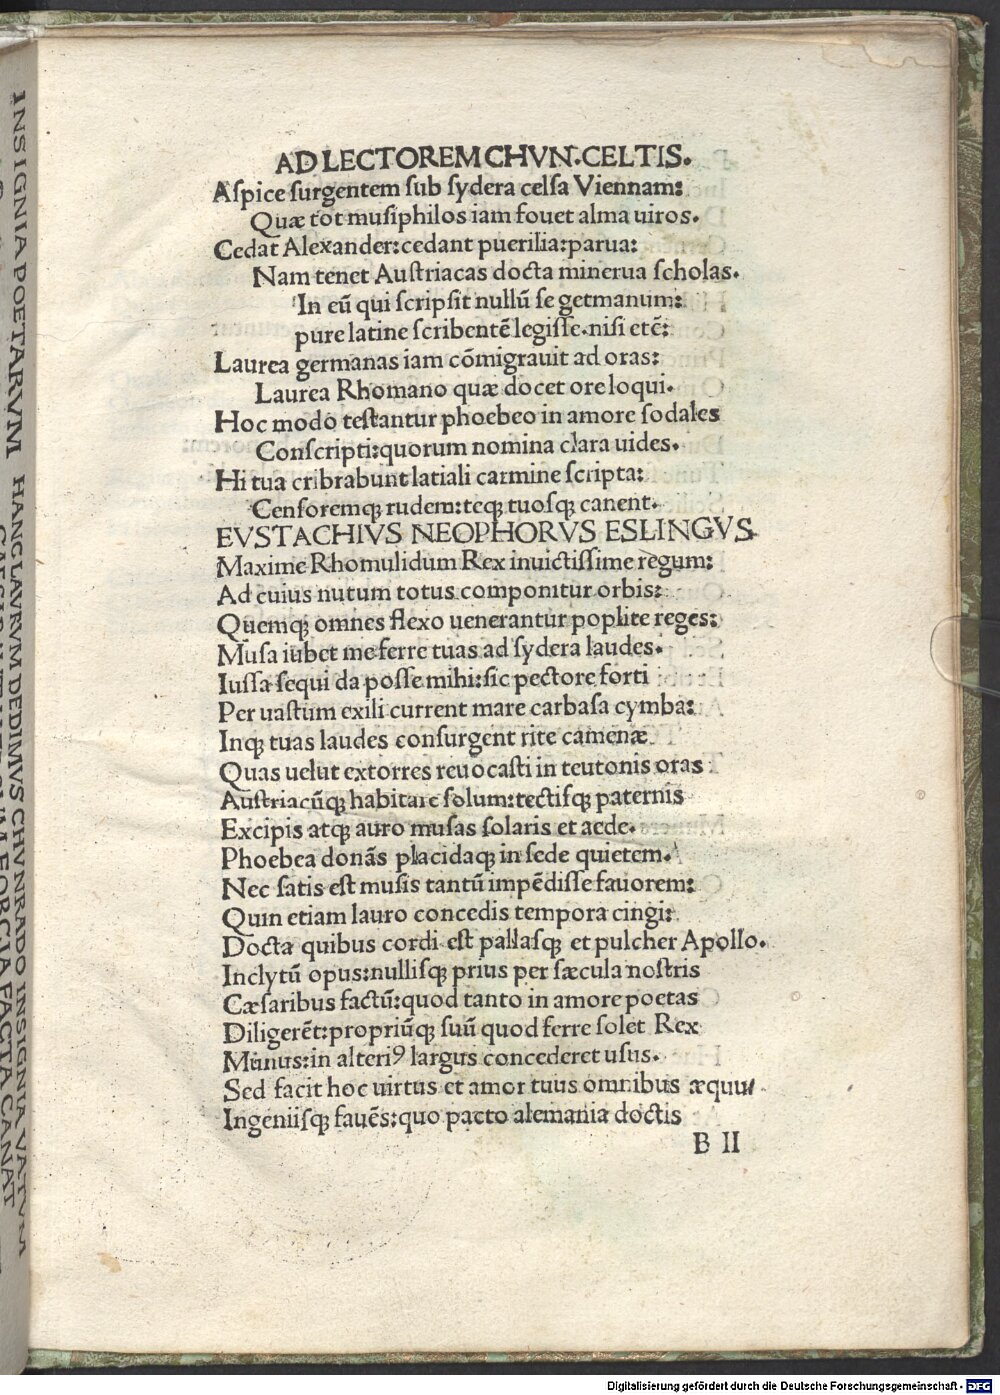 AD LECTOREM CHVN. CELTIS.
Aspice surgentem sub sydera celsa Viennam:
Quæ tot musiphilos iam fouet alma uiros.
Cedat Alexander: cedant puerilia: parua:
Nam tenet Austriacas docta minerua scholas.
In eū qui scripsit nullū se germanum:
pure latine scribentē legisse. nisi etē:
Laurea germanas iam cōmigrauit ad oras:
Laurea Rhomano quæ docet ore loqui.
Hoc modo testantur phoebeo in amore sodales
Conscripti: quorum nomina clara uides.
Hi tua cribrabunt latiali carmine scripta:
Censoremqꝫ rudem: teqꝫ tuosqꝫ canent.
EVSTACHIVS NEOPHORVS ESLINGVS
Maxime Rhomulidum Rex inuictissime regum:
Ad cuius nutum totus componitur orbis:
Quemqꝫ omnes flexo uenerantur poplite reges:
Musa iubet me ferre tuas ad sydera laudes.
Iussa sequi da posse mihi: sic pectore forti
Per uastum exili current mare carbasa cymba:
Inqꝫ tuas laudes consurgent rite camenæ
Quas uelut extorres reuocasti in teutonis oras
Austriacūqꝫ habitare solum: tectisqꝫ paternis
Excipis atqꝫ auro musas solaris et aede.
Phoebea donās placidaqꝫ in sede quietem.
Nec satis est musis tantū impēdisse fauorem:
Quin etiam lauro concedis tempora cingi:
Docta quibus cordi est pallasqꝫ et pulcher Apollo.
Inclytū opus: nullisqꝫ prius per sæcula nostris
Cæsaribus factū: quod tanto in amore poetas
Diligerēt: propriūqꝫ suū quod ferre solet Rex
Munus: in alteriꝰ largus concederet usus.
Sed facit hoc uirtus et amor tuus omnibus æquus
Ingeniisqꝫ fauēs: quo pacto alemania doctis
B II
INSIGNIA POETARVM
HANC LAVRVM DEDIMVS CHVNRADO INSIGNIA VATVM
FORCIA FACTA CANAT
Digitalisierung gefördert durch die Deutsche Forschungsgemeinschaft - DFG